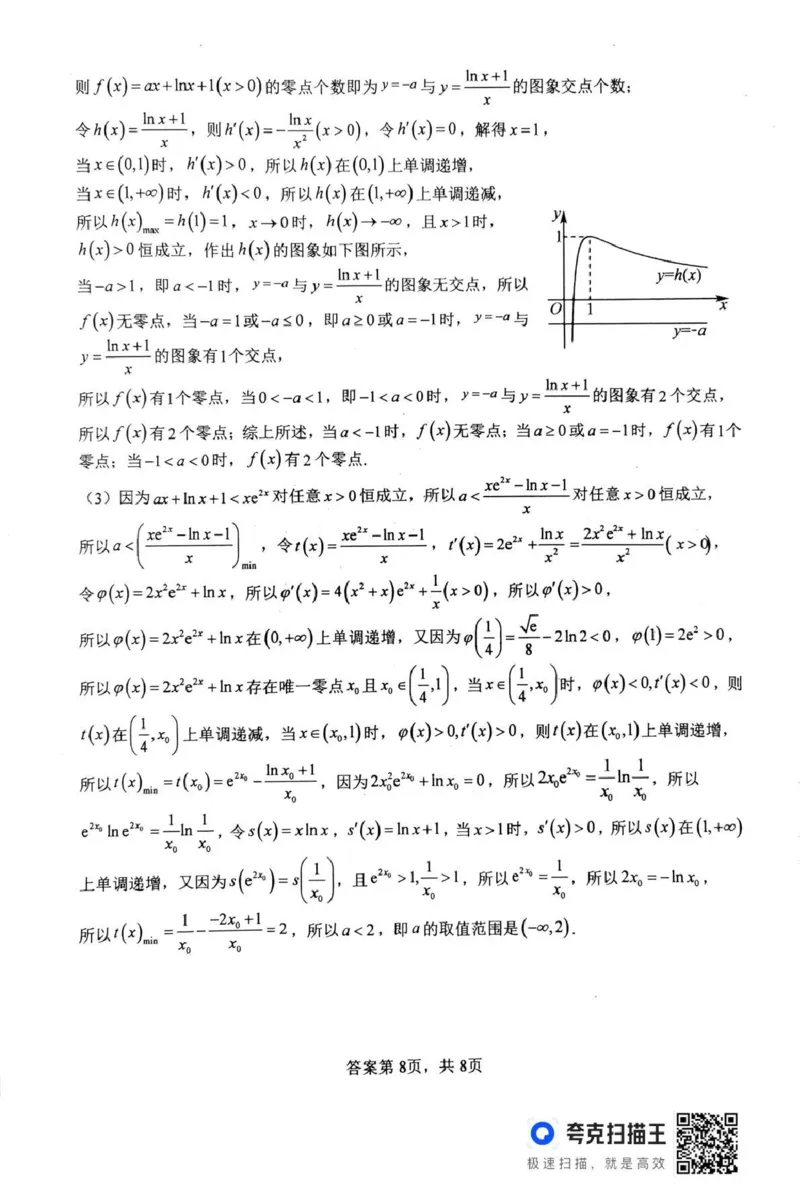 则f(x)=ax+lnx+1(x>0)的零点个数即为y=-a与y=\frac{lnx+1}{x}的图象交点个数;
令h(x)=\frac{lnx+1}{x},则h′(x)=-\frac{lnx}{x²}(x>0),令h′(x)=0,解得x=1,
当x∈(0,1)时,h′(x)>0,所以h(x)在(0,1)上单调递增,
当x∈(1,+∞)时,h′(x)<0,所以h(x)在(1,+∞)上单调递减,
所以h(x)_{max}=h(1)=1,x→0时,h(x)→-∞,且x>1时,
h(x)>0恒成立,作出h(x)的图象如下图所示,
当-a>1,即a<-1时,y=-a与y=\frac{lnx+1}{x}的图象无交点,所以
f(x)无零点,当-a=1或-a≤0,即a≥0或a=-1时,y=-a与
y=\frac{lnx+1}{x}的图象有1个交点,
y
1
y=h(x)
O
1
x
y=-a
所以f(x)有1个零点,当0<-a<1,即-1<a<0时,y=-a与y=\frac{lnx+1}{x}的图象有2个交点,
所以f(x)有2个零点;综上所述,当a<-1时,f(x)无零点;当a≥0或a=-1时,f(x)有1个
零点;当-1<a<0时,f(x)有2个零点.
(3)因为ax+lnx+1<xe^{2x}对任意x>0恒成立,所以a<\frac{xe^{2x}-lnx-1}{x}对任意x>0恒成立,
所以a<(\frac{xe^{2x}-lnx-1}{x})_{min},令t(x)=\frac{xe^{2x}-lnx-1}{x},t′(x)=2e^{2x}+\frac{lnx}{x²}=\frac{2x²e^{2x}+lnx}{x²}(x>0),
令φ(x)=2x²e^{2x}+lnx,所以φ′(x)=4(x²+x)e^{2x}+\frac{1}{x}(x>0),所以φ′(x)>0,
所以φ(x)=2x²e^{2x}+lnx在(0,+∞)上单调递增,又因为φ(\frac{1}{4})=\frac{√e}{8}-2ln2<0,φ(1)=2e²>0,
所以φ(x)=2x²e^{2x}+lnx存在唯一零点x₀且x₀∈(\frac{1}{4},1),当x∈(\frac{1}{4},x₀)时,φ(x)<0,t′(x)<0,则
t(x)在(\frac{1}{4},x₀)上单调递减,当x∈(x₀,1)时,φ(x)>0,t′(x)>0,则t(x)在(x₀,1)上单调递增,
所以t(x)_{min}=t(x₀)=e^{2x₀}-\frac{lnx₀+1}{x₀},因为2x₀²e^{2x₀}+lnx₀=0,所以2x₀e^{2x₀}=\frac{1}{x₀}ln\frac{1}{x₀},所以
e^{2x₀}lne^{2x₀}=\frac{1}{x₀}ln\frac{1}{x₀},令s(x)=xlnx,s′(x)=lnx+1,当x>1时,s′(x)>0,所以s(x)在(1,+∞)
上单调递增,又因为s(e^{2x₀})=s(\frac{1}{x₀}),且e^{2x₀}>1,\frac{1}{x₀}>1,所以e^{2x₀}=\frac{1}{x₀},所以2x₀=-lnx₀,
所以t(x)_{min}=\frac{1}{x₀}-\frac{-2x₀+1}{x₀}=2,所以a<2,即a的取值范围是(-∞,2).
答案第8页,共8页
夸克扫描王
极速扫描,就是高效